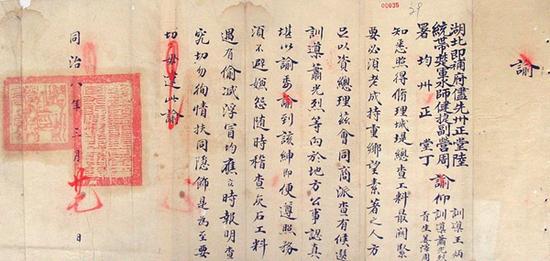 00035
29
諭
湖北即補府儘先州正堂陸
統帶襄軍水師健捷副營周
署均州正堂丁
諭仰
訓導王炳
訓導蕭光烈
首生姜
知悉照得脩理城堤總查工料最關緊
要必須老成持重鄉望素著之人方
足以資總理茲會同商派查有候選
訓導蕭光烈等向於地方公事認真
堪以諭委諭到該紳即便遵照務
須不避嫌怨隨時稽查灰石工料
遇有偷減浮冒均應立時報明查
究切勿徇情扶同隱飾是為至要
切毋違此諭
同治八年三月
日